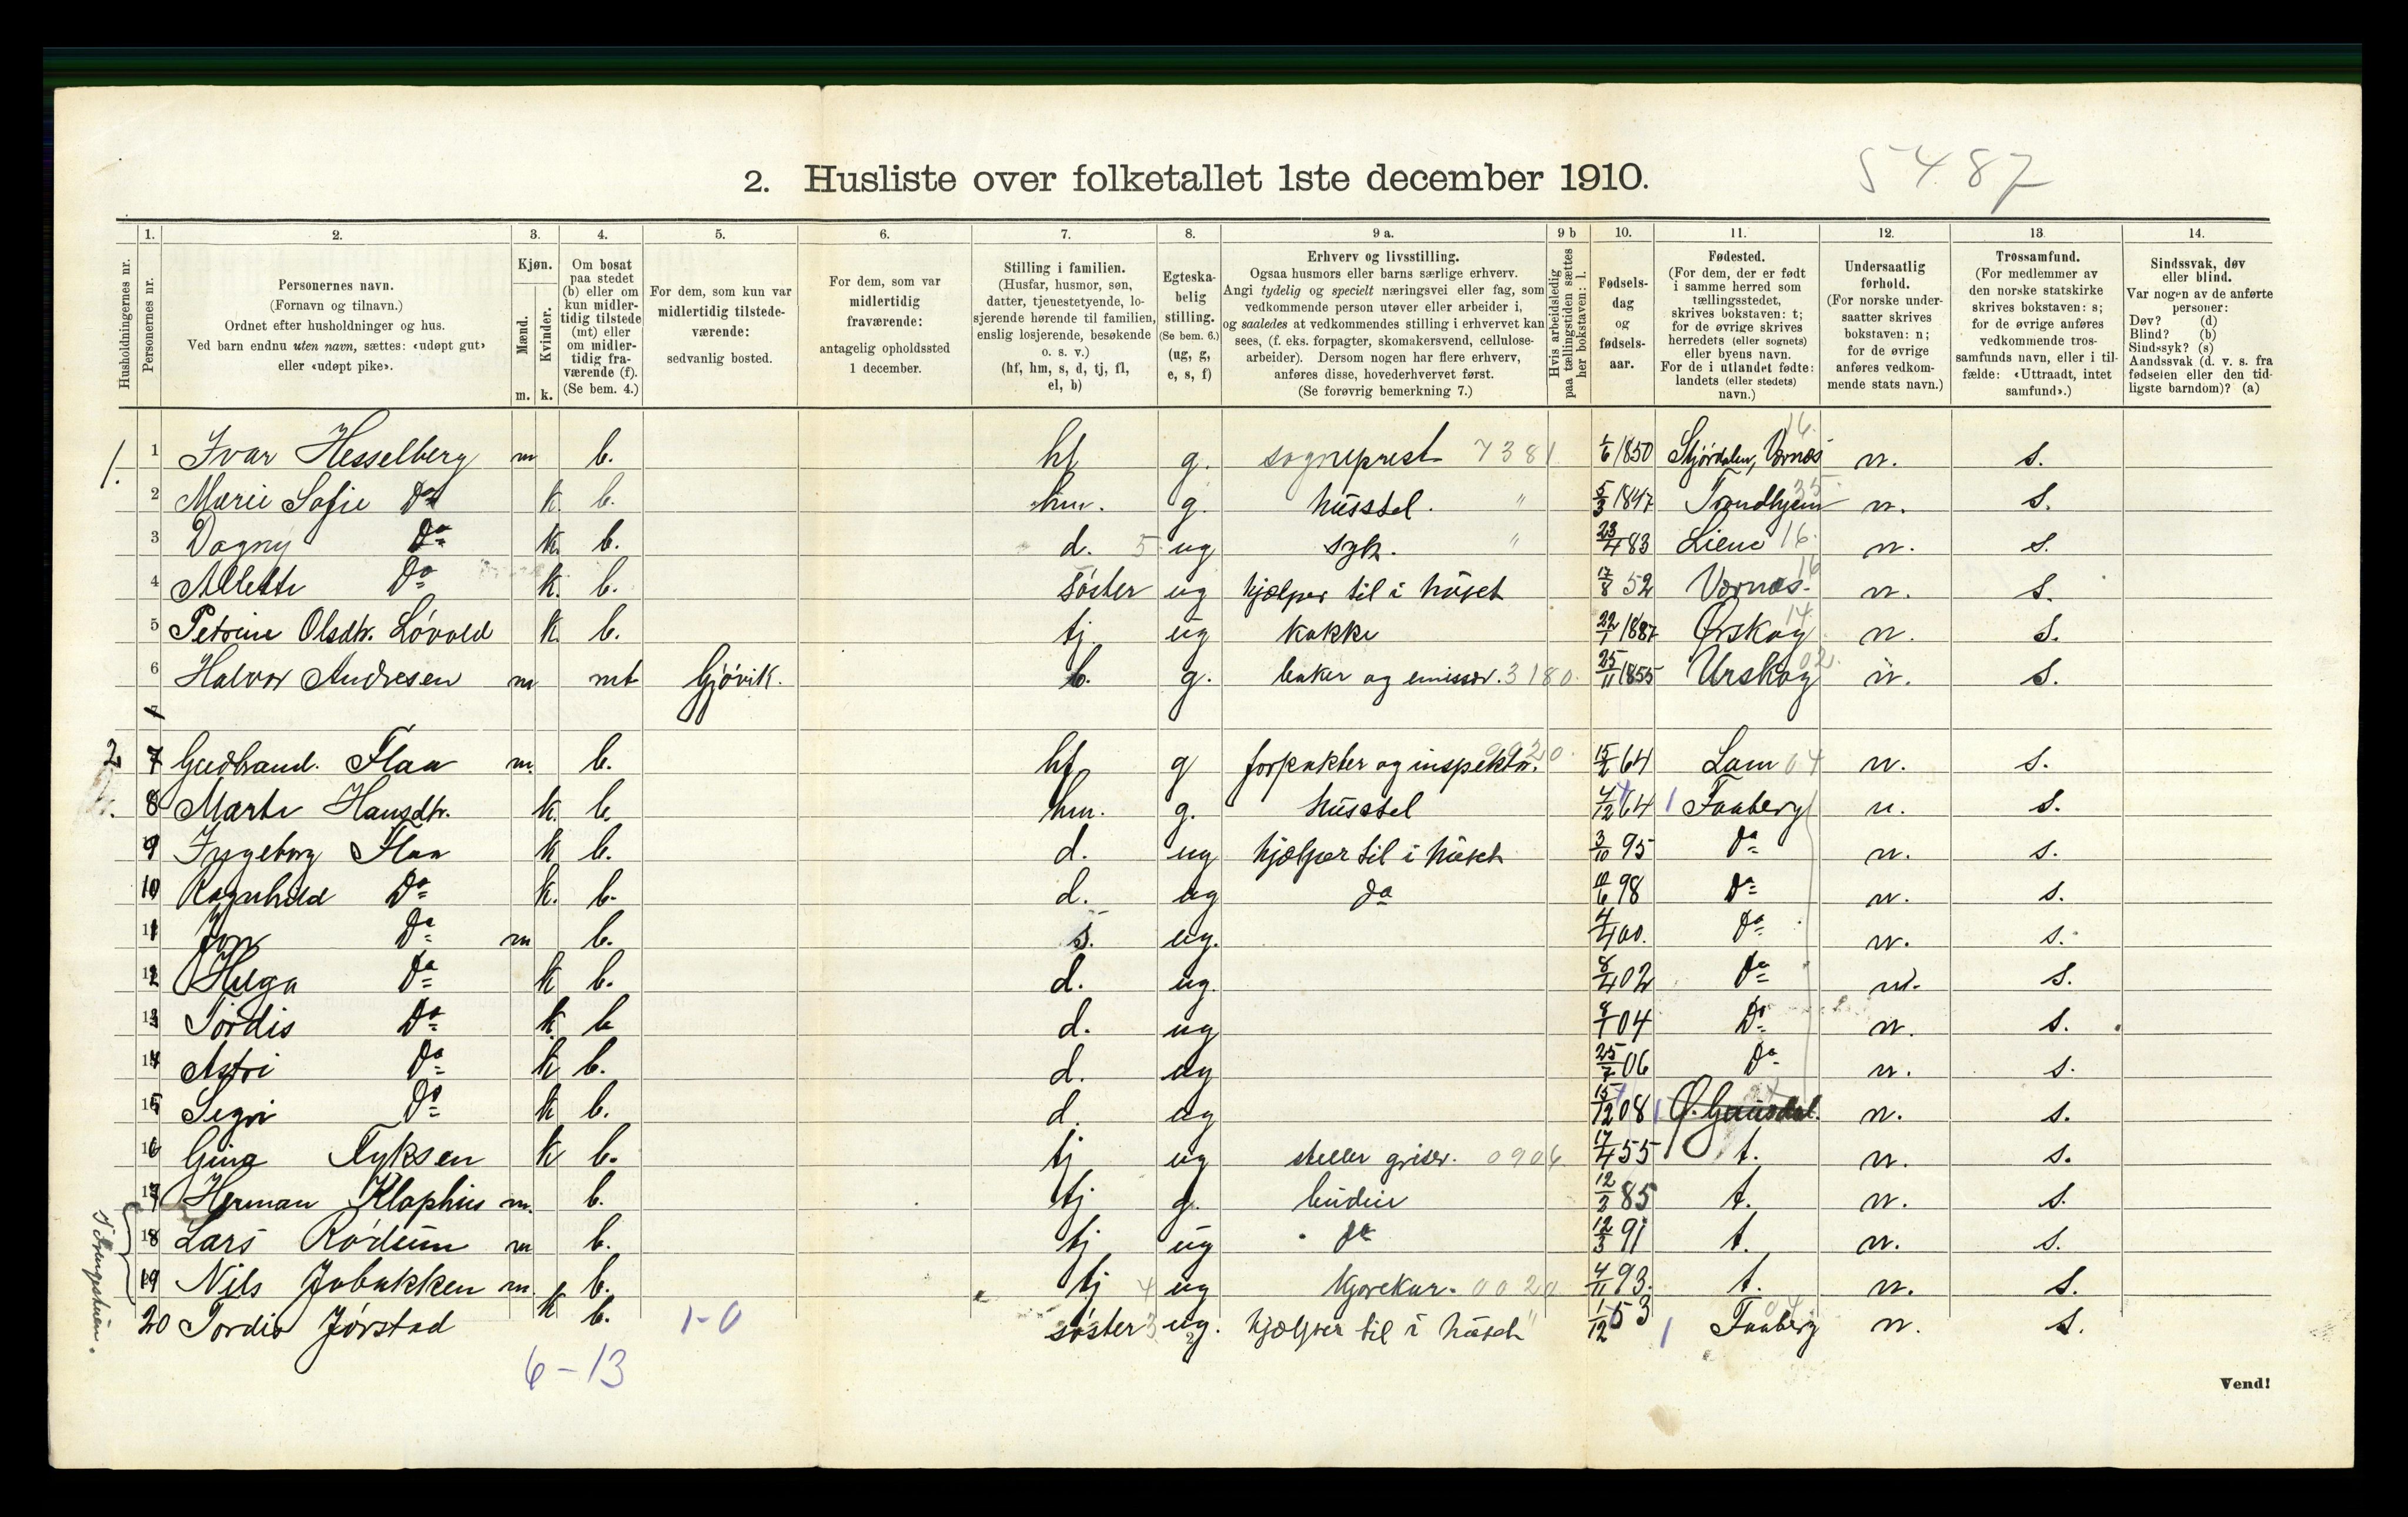 2. Husliste over folketallet 1ste december 1910.
5487
Husholdningernes nr.
1. Personernes nr.
2. Personernes navn.
(Fornavn og tilnavn.)
Ordnet efter husholdninger og hus.
Ved barn endnu uten navn, sættes: «udøpt gut»
eller «udøpt pike».
3. Kjøn.
Mænd. m.
Kvinder. k.
4. Om bosat
paa stedet
(b) eller om
kun midler-
tidig tilstede
(mt) eller
om midler-
tidig fra-
værende (f).
(Se bem. 4.)
5. For dem, som kun var
midlertidig tilstede-
værende:
sedvanlig bosted.
6. For dem, som var
midlertidig
fraværende:
antagelig opholdssted
1 december.
7. Stilling i familien.
(Husfar, husmor, søn,
datter, tjenestetyende, lo-
sjerende hørende til familien,
enslig losjerende, besøkende
o. s. v.)
(hf, hm, s, d, tj, fl,
el, b)
8. Egteska-
belig
stilling.
(Se bem. 6.)
(ug, g,
e, s, f)
9 a. Erhverv og livsstilling.
Ogsaa husmors eller barns særlige erhverv.
Angi tydelig og specielt næringsvei eller fag, som
vedkommende person utøver eller arbeider i,
og saaledes at vedkommendes stilling i erhvervet kan
sees, (f. eks. forpagter, skomakersvend, cellulose-
arbeider). Dersom nogen har flere erhverv,
anføres disse, hovederhvervet først.
(Se forøvrig bemerkning 7.)
9 b Hvis arbeidsledig
paa tællingstiden sættes
her bokstaven: l.
10. Fødsels-
dag
og
fødsels-
aar.
11. Fødested.
(For dem, der er født
i samme herred som
tællingsstedet,
skrives bokstaven: t;
for de øvrige skrives
herredets (eller sognets)
eller byens navn.
For de i utlandet fødte:
landets (eller stedets)
navn.)
12. Undersaatlig
forhold.
(For norske under-
saatter skrives
bokstaven: n;
for de øvrige
anføres vedkom-
mende stats navn.)
13. Trossamfund.
(For medlemmer av
den norske statskirke
skrives bokstaven: s;
for de øvrige anføres
vedkommende tros-
samfunds navn, eller i til-
fælde: «Uttraadt, intet
samfund».)
14. Sindssvak, døv
eller blind.
Var nogen av de anførte
personer:
Døv? (d)
Blind? (b)
Sindssyk? (s)
Aandssvak (d. v. s. fra
fødselen eller den tid-
ligste barndom)? (a)
1. 1 Ivar Hesselberg m b. hf g. sogneprest 7381 1/6 1850 Stjørdalen, Værnes 16. n. s.
2 Marie Sofie Do k. b. hm. g. husstel. " 5/3 1847 Trondhjem 35 n. s.
3 Dagny Do k. b. d. 5 ug syk. " 23/4 83 Lierne 16. n. s.
4 Allette Do k. b. søster ug hjælper til i huset 17/8 52 Værnes. 16 n. s.
5 Petrine Olsdtr. Løvold k. b. tj ug kokke 22/1 1887 Ørskog 14. n. s.
6 Halvor Andresen m mt Gjøvik. b. g. baker og emissær. 3180. 25/11 1855 Urskog 02. n. s.
7
2 7 Gudbrand. Flaa m. b. hf g forpakter og inspektør. 15/2 64 Lom 04 n. s.
8 Marte Hansdtr. k. b. hm. g. husstel 4/12 64 1 Faaberg n. s.
9 Ingeborg Flaa k b. d. ug hjælper til i huset 3/10 95 Do n. s.
10 Ragnhild Do k. b. d. ug do 10/6 98 Do n. s.
11 Jon Do m b. s. ug. 4/4 00. Do n. s.
12 Helga Do k b. d. ug. 8/4 02 Do n. s.
13 Tordis Do k. b d. ug 9/1 04 Do n. s.
14 Astri Do k b. d. ug 25/7 06 Do n. s.
15 Sigri Do k b. d. ug 15/12 08 1 Ø. Gausdal. n. s.
16 Gina Tyksen k b. tj ug steller griser. 0906 17/4 55 t. n. s.
17 Herman Klaphus m. b. tj g. budeie 12/3 85 t. n. s.
18 Lars Rødum m b. tj ug do 12/3 91 t. n. s.
19 Nils Jobakken m. b. tj 4 ug kjørekar. 0020 4/11 93. t. n. s.
20 Tordis Jørstad k b. søster 3 ug. hjælper til i huset " 1/12 53 1 Faaberg n. s.
I drengestuen.
1-0
6-13
Vend!